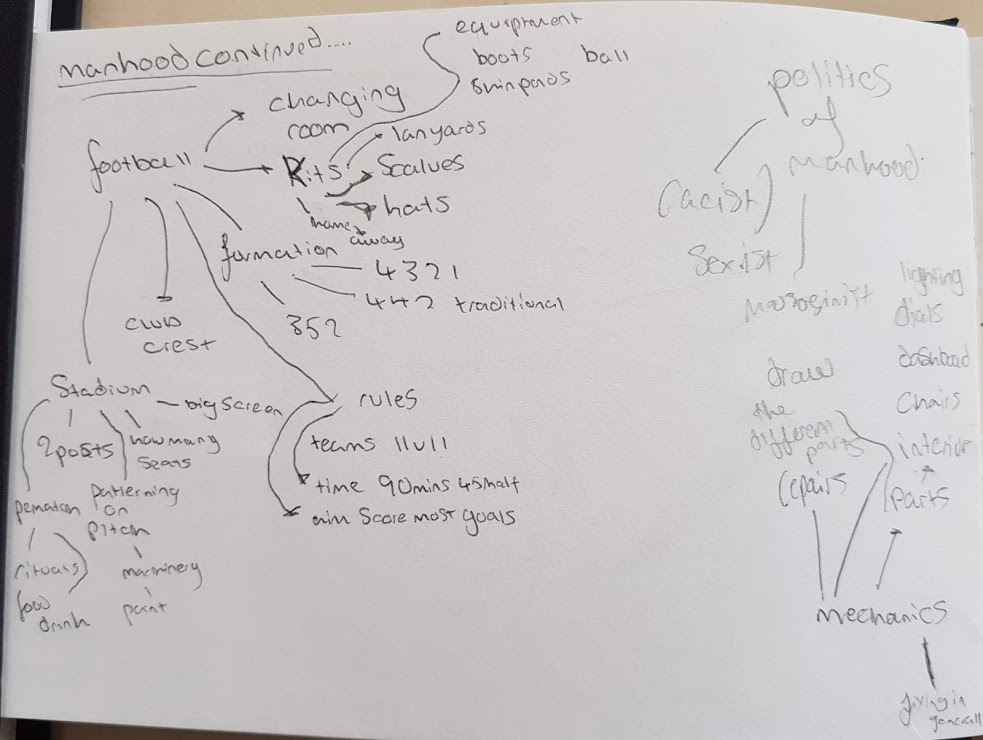 manhood continued....
equipment
boots ball
shinpads
changing
room
lanyards
football
Kits
Scalves
hats
home
away
formation
4321
442 traditional
352
club
crest
Stadium
big screen
2 posts
how many
seats
patterning
on
pitch
machinery
paint
rituals
food
drink
rules
teams 11v11
time 90mins 45half
aim Score most goals
politics
of
manhood
racist
Sexist
lighting
dials
dashboad
Chairs
interior
parts
draw
the
different
parts
repairs
mechanics
fixing in